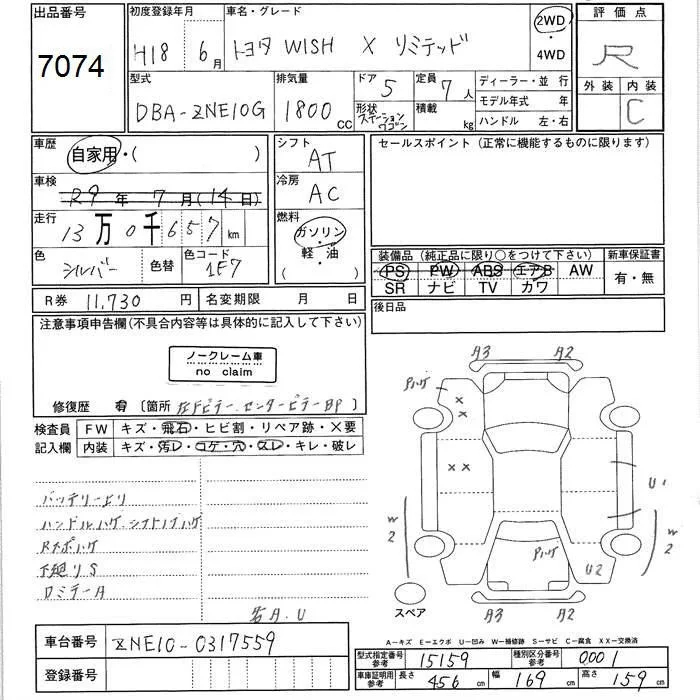 出品番号 初度登録年月 車名・グレード 2WD・4WD 評価点
7074 H18 6月 トヨタ WISH X リミテッド R
型式 排気量 ドア 定員 ディーラー・並行 外装 内装
DBA-ZNE10G 1800cc 5 7人 モデル年式 年 C
形状 ステーションワゴン 積載 kg ハンドル 左・右
車歴 自家用・( ) シフト AT セールスポイント (正常に機能するものに限ります)
車検 R9年7月(14日) 冷房 AC
走行 13万0千657km 燃料 ガソリン・軽・油 ( )
色 シルバー 色替 色コード 1E7
装備品 (純正品に限り○をつけて下さい) 新車保証書
PS PW ABS エアB AW 有・無
SR ナビ TV カワ
R券 11,730円 名変期限 月 日 後日品
注意事項申告欄(不具合内容等は具体的に記入して下さい)
ノークレーム車
no claim
修復歴 有 [箇所 左Fピラー.センターピラーBP]
検査員 FW キズ・飛石・ヒビ割・リペア跡・×要
記入欄 内装 キズ・汚レ・コゲ・穴・スレ・キレ・破レ
バッテリー上り
ハンドルハゲ.シフトノブハゲ
下廻りS
各A.U
A3 A2
Pハゲ
××
××
U1
W2 W2
Pハゲ
U2
スペア A3 A2
A-キズ E-エクボ U-凹み W-補修跡 S-サビ C-腐食 XX-交換済
車台番号 ZNE10-0317559
登録番号
型式指定番号 参考 15159 種別区分番号 参考 0001
車庫証明用 参考 長さ 456cm 幅 169cm 高さ 159cm